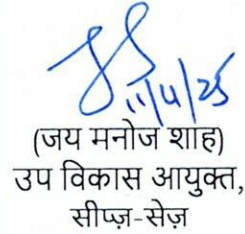 11/4/25
(जय मनोज शाह)
उप विकास आयुक्त,
सीप्ज़-सेज़